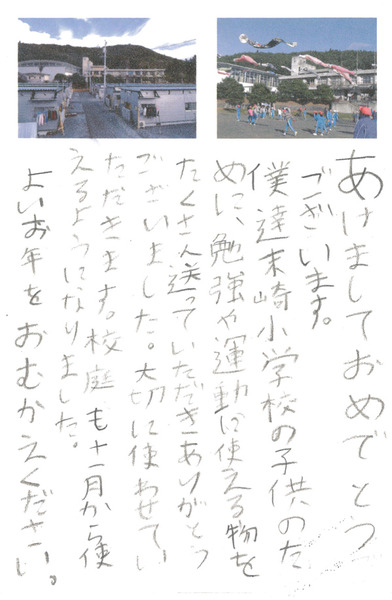 あけましておめでとう
ございます。
僕達末崎小学校の子供のた
めに、勉強や運動に使える物を
たくさん送っていただきありがとう
ございました。大切に使わせてい
ただきます。校庭も十一月から使
えるようになりました。
よいお年をおむかえください。